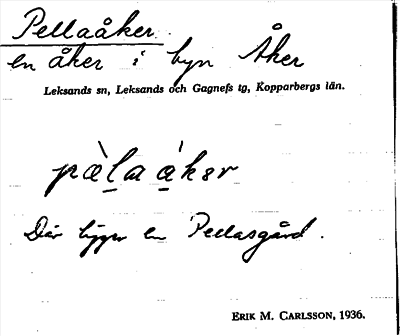 Pellaåker
en åker i byn Åker
Leksands sn, Leksands och Gagnefs tg, Kopparbergs län.
pæ̀l̠a a̠̍kər
Där ligger en Pellasgård.
ERIK M. CARLSSON, 1936.